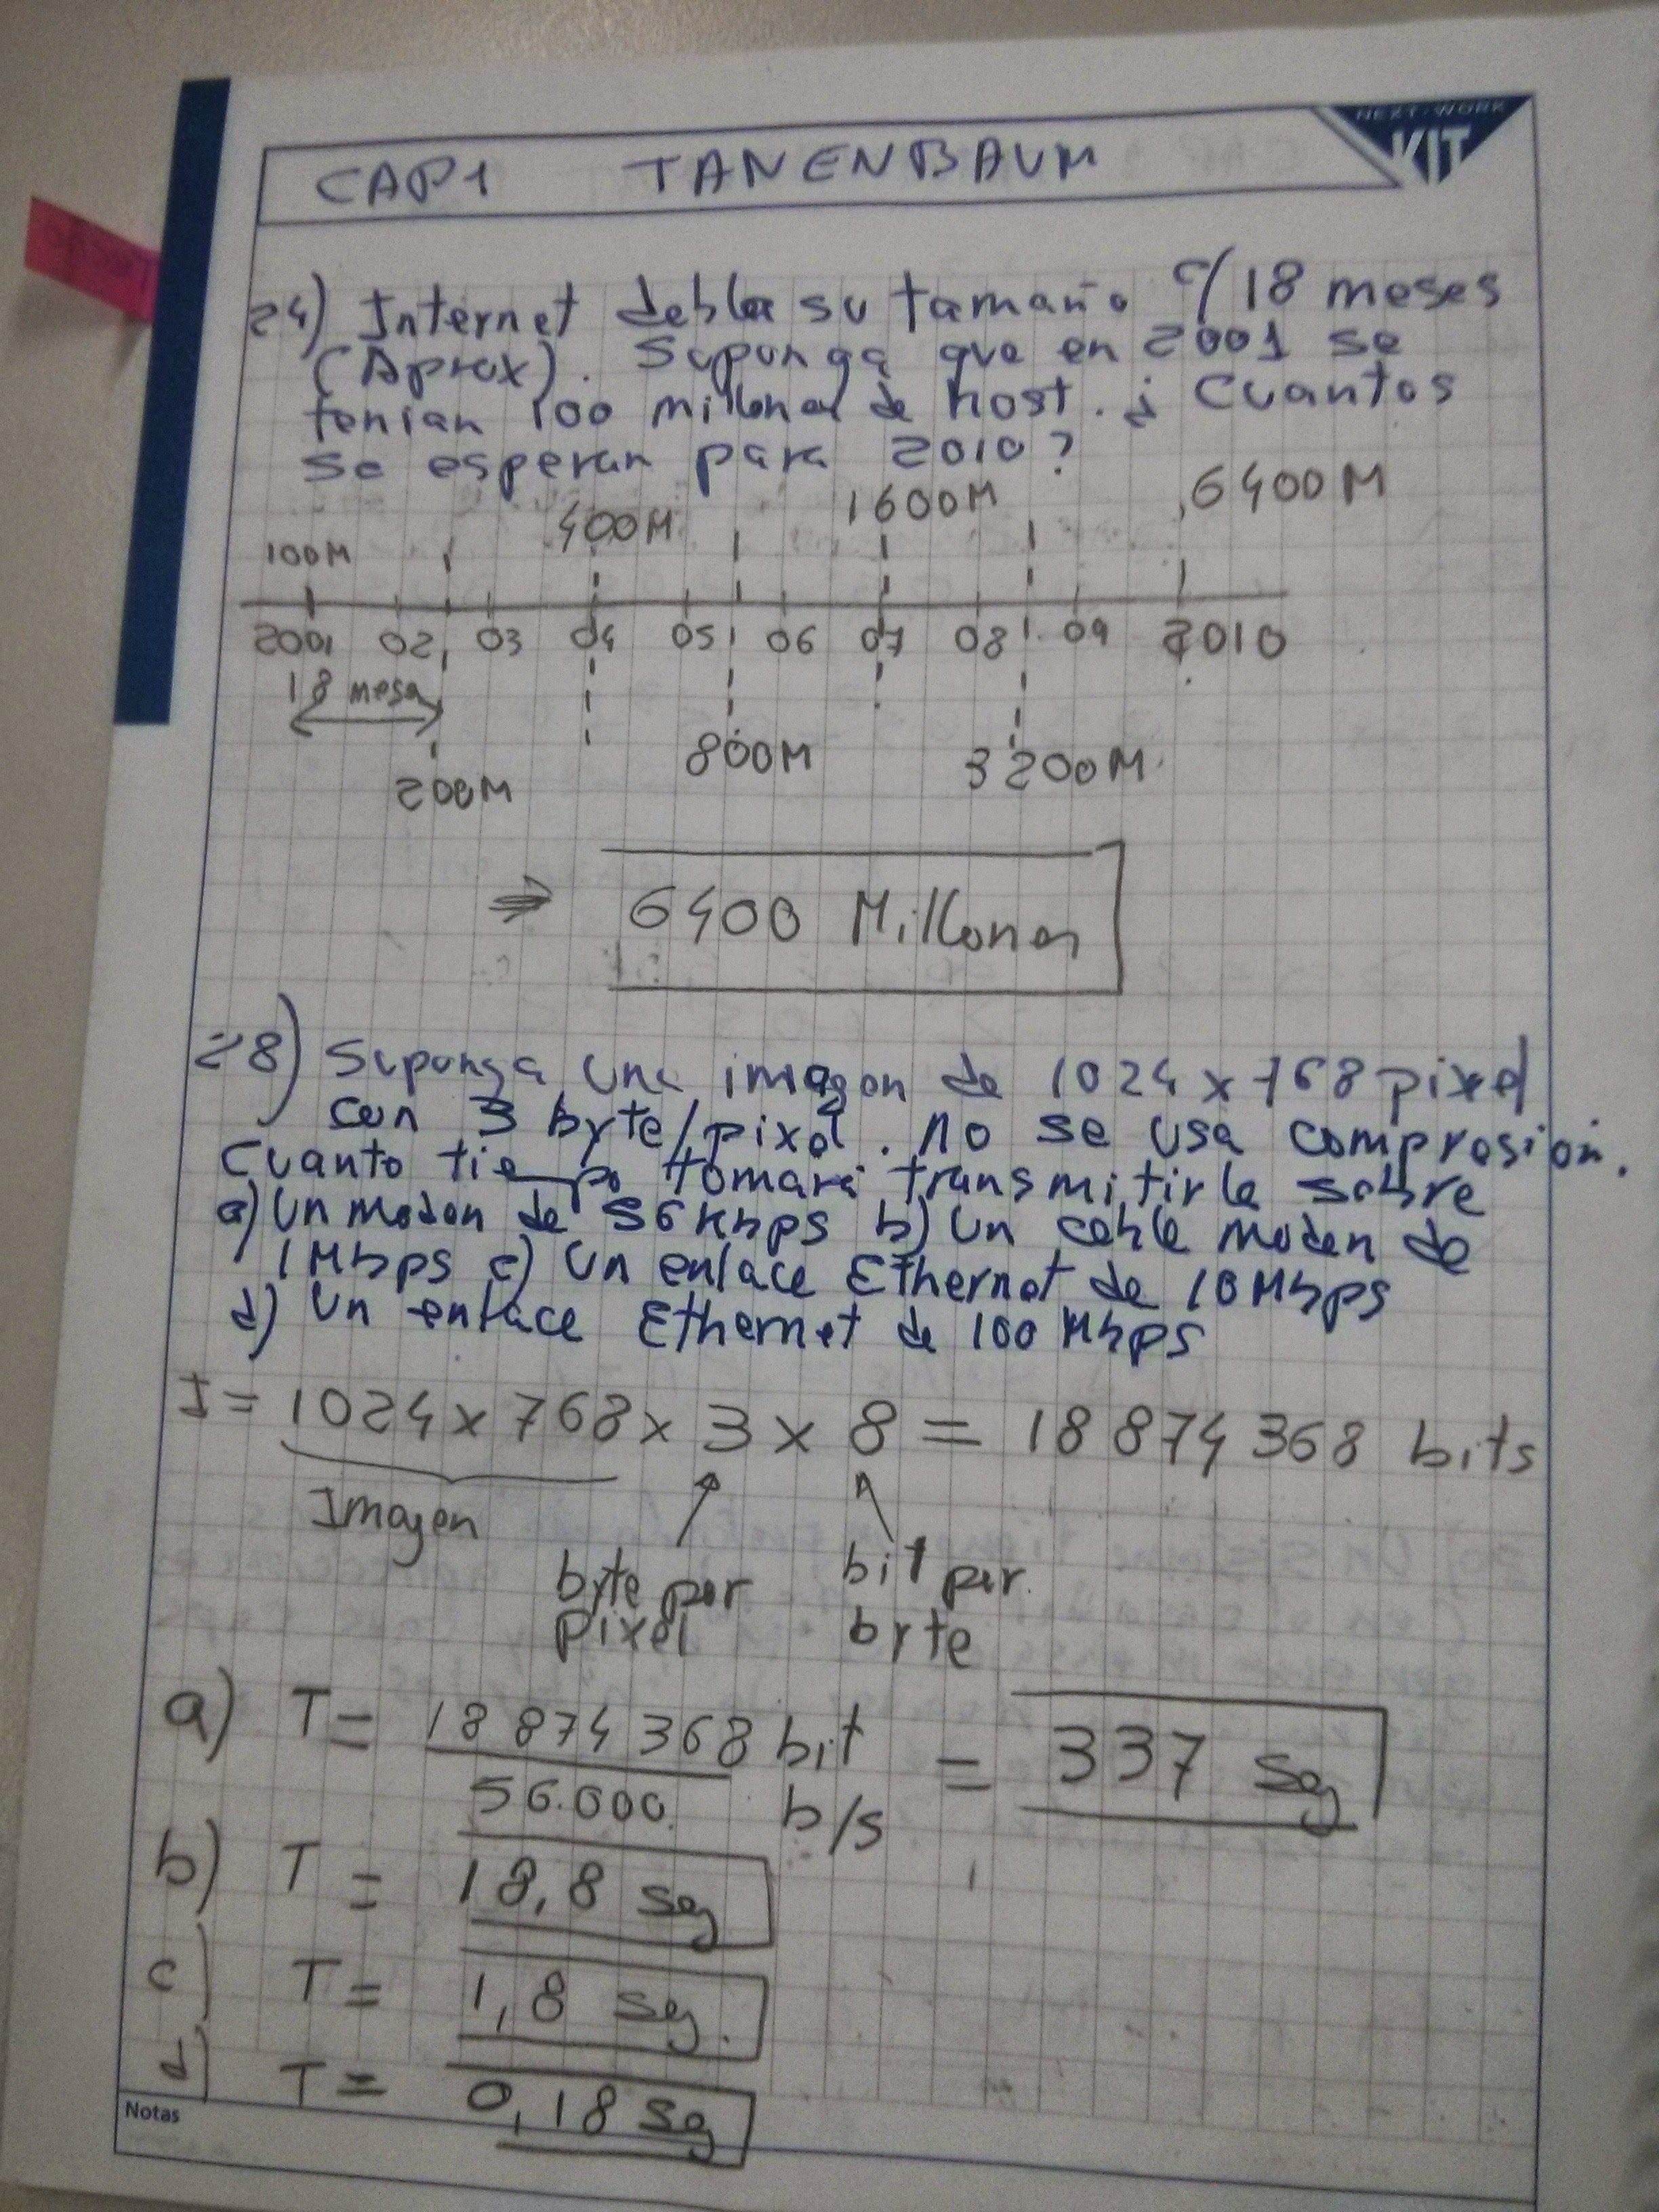 NEXT-WORK
KIT
CAP1 TANENBAUM
24) Internet debla su tamaño c/18 meses
(Aprox). Suponga que en 2001 se
tenian 100 millones de host. ¿ Cuantos
se esperan para 2010?
100M 400M 1600M 6400M
2001 02 03 04 05 06 07 08 09 2010
18 meses
200M 800M 3200M
⇒ 6400 Millones
28) Suponga una imagen de 1024 x 768 pixel
con 3 byte/pixel. no se usa compresion.
Cuanto tiempo tomara transmitirla sobre
a) Un modem de 56 kbps b) Un cable modem de
1 Mbps c) Un enlace Ethernet de 10 Mbps
d) Un enlace Ethernet de 100 Mbps
I = 1024 x 768 x 3 x 8 = 18 874 368 bits
Imagen
byte por
pixel
bit por
byte
a) T = 18 874 368 bit = 337 seg
56.000 b/s
b) T = 18,8 seg
c) T = 1,8 seg.
d) T = 0,18 seg
Notas